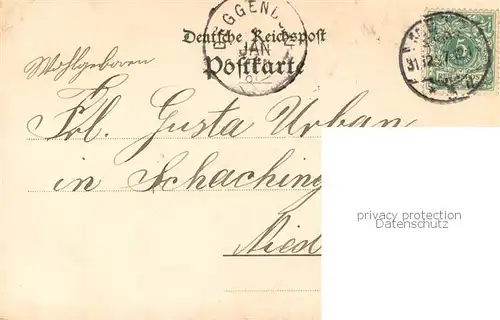 Deutsche Reichspost
Postkarte
DEGGENDORF
JAN
31.12.97
Wohlgeboren
Frl. Gusta Urban
in Schaching
Nied
privacy protection
Datenschutz